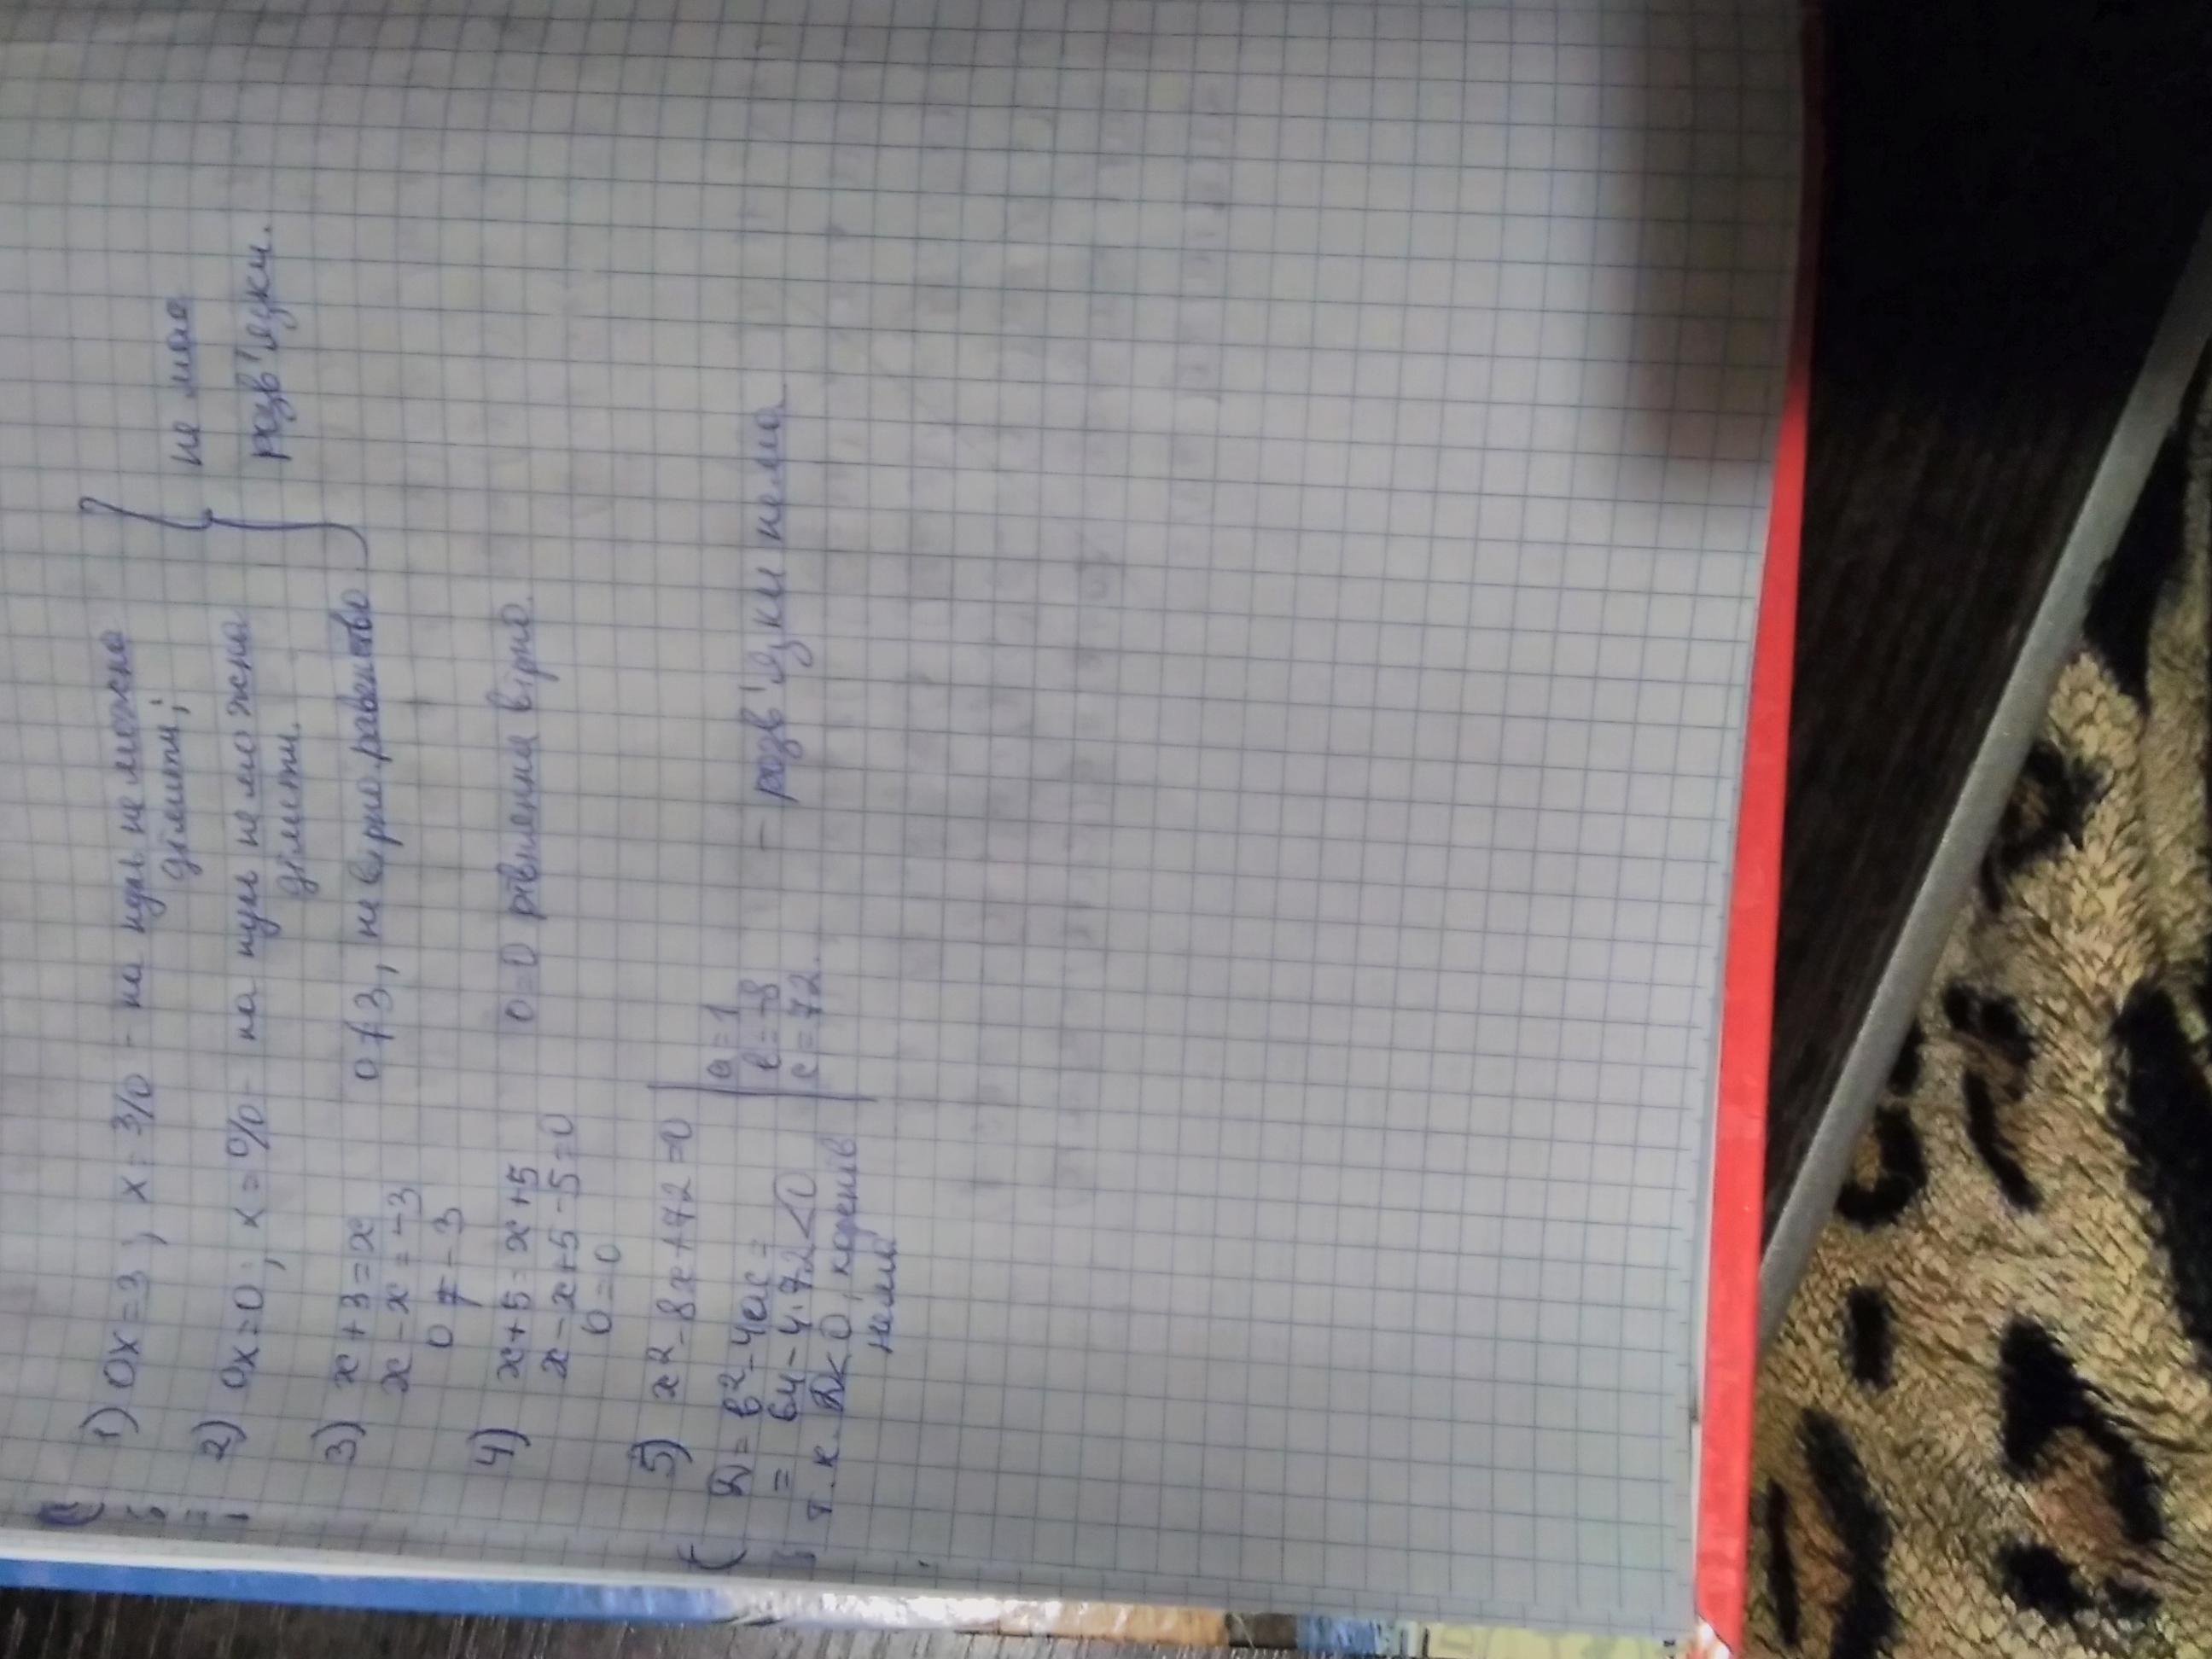 1) 0x=3; x=3/0 - на нуль не можна
ділити;
не має
розв'язки.
2) 0x=0; x=0/0 - на нуль не можна
ділити.
3) x+3=x
x-x=-3
0≠-3
0≠3, не вірно равенство
4) x+5=x+5
x-x+5-5=0
0=0
0=0 рівняння вірно.
5) x²-8x+72=0
D=b²-4ac=
=64-4·72<0
т.к. D<0, коренів
немає
a=1
b=-8
c=72.
- розв'язки нема